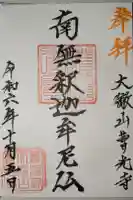 奉拝
大龍山音光寺
南無釈迦牟尼仏
令和六年十月五日